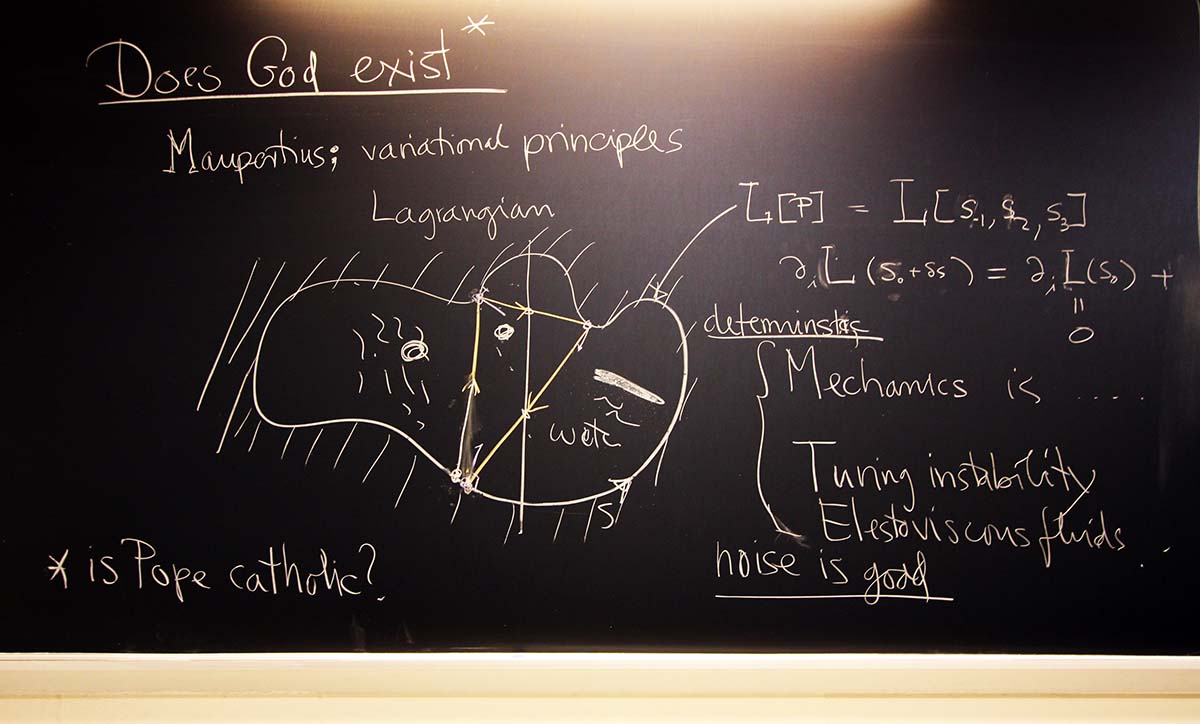 Does God exist *
Maupertius; variational principles
Lagrangian
L[P] = L[S₁, S₂, S₃]
∂ᵢL(S₀+δS) = ∂ᵢL(S₀) +
=
0
determinstic
Mechanics is .....
Turing instability
Elestoviscous fluids .
S
noise is good
* is Pope catholic?